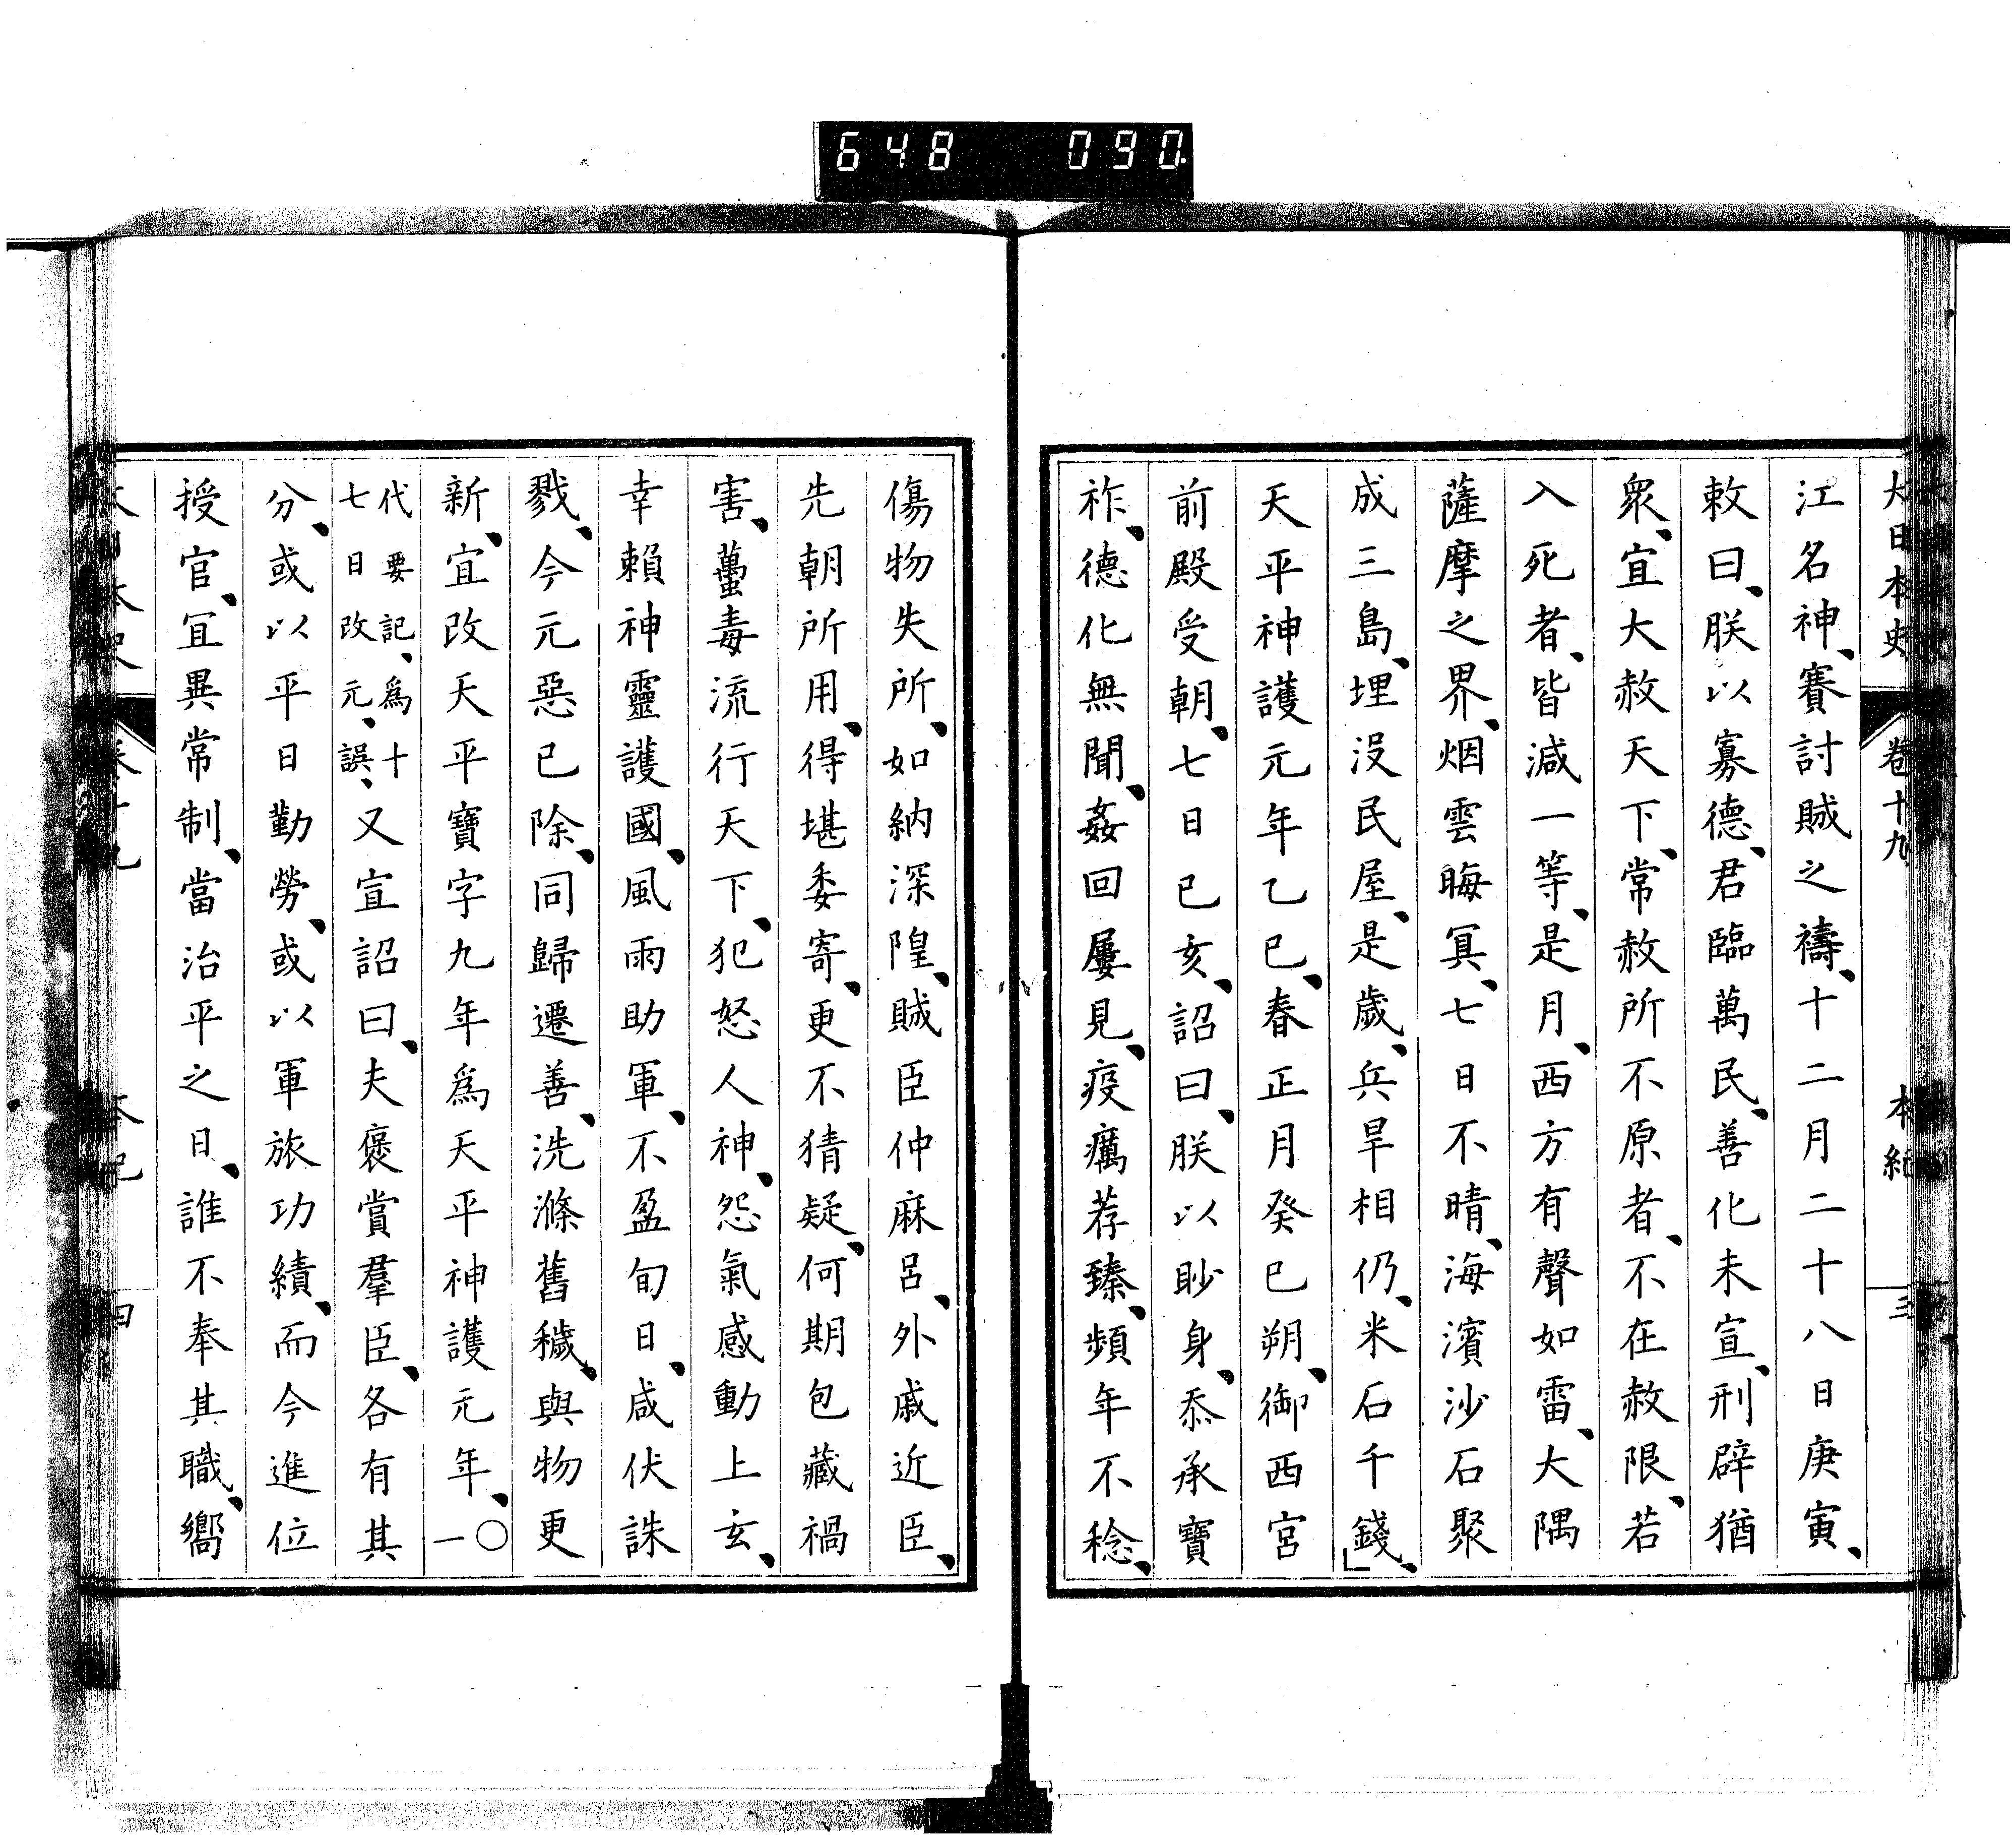 648 090
大日本史 卷十九 本紀 三
江名神、賽討賊之禱、十二月二十八日庚寅、
敕曰、朕以寡德、君臨萬民、善化未宣、刑辟猶
衆、宜大赦天下、常赦所不原者、不在赦限、若
入死者、皆減一等、是月、西方有聲如雷、大隅
薩摩之界、烟雲晦冥、七日不晴、海濱沙石聚
成三島、埋沒民屋、是歲、兵旱相仍、米石千錢、」
天平神護元年乙巳、春正月癸巳朔、御西宮
前殿受朝、七日己亥、詔曰、朕以眇身、忝承寶
祚、德化無聞、姦回屢見、疫癘荐臻、頻年不稔、
傷物失所、如納深隍、賊臣仲麻呂、外戚近臣、
先朝所用、得堪委寄、更不猜疑、何期包藏禍
害、蠆毒流行天下、犯怒人神、怨氣感動上玄、
幸賴神靈護國、風雨助軍、不盈旬日、咸伏誅
戮、今元惡已除、同歸遷善、洗滌舊穢、與物更
新、宜改天平寶字九年爲天平神護元年、〇一
代要記、爲十七日改元、誤、又宣詔曰、夫褒賞羣臣、各有其
分、或以平日勤勞、或以軍旅功績、而今進位
授官、宜異常制、當治平之日、誰不奉其職、嚮